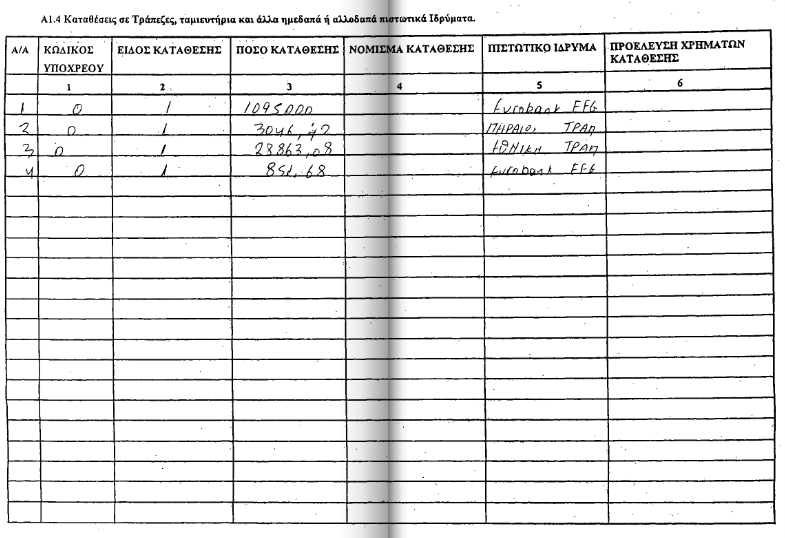 Α1.4 Καταθέσεις σε Τράπεζες, ταμιευτήρια και άλλα ημεδαπά ή αλλοδαπά πιστωτικά Ιδρύματα.
Α/Α ΚΩΔΙΚΟΣ ΥΠΟΧΡΕΟΥ ΕΙΔΟΣ ΚΑΤΑΘΕΣΗΣ ΠΟΣΟ ΚΑΤΑΘΕΣΗΣ ΝΟΜΙΣΜΑ ΚΑΤΑΘΕΣΗΣ ΠΙΣΤΩΤΙΚΟ ΙΔΡΥΜΑ ΠΡΟΕΛΕΥΣΗ ΧΡΗΜΑΤΩΝ ΚΑΤΑΘΕΣΗΣ
1 2 3 4 5 6
1 0 1 1095000 Eurobank EFG
2 0 1 ΤΡΑΠ
3 0 1 28863,08 ΕΘΝΙΚΗ ΤΡΑΠ
4 0 1 851,68 Eurobank EFG